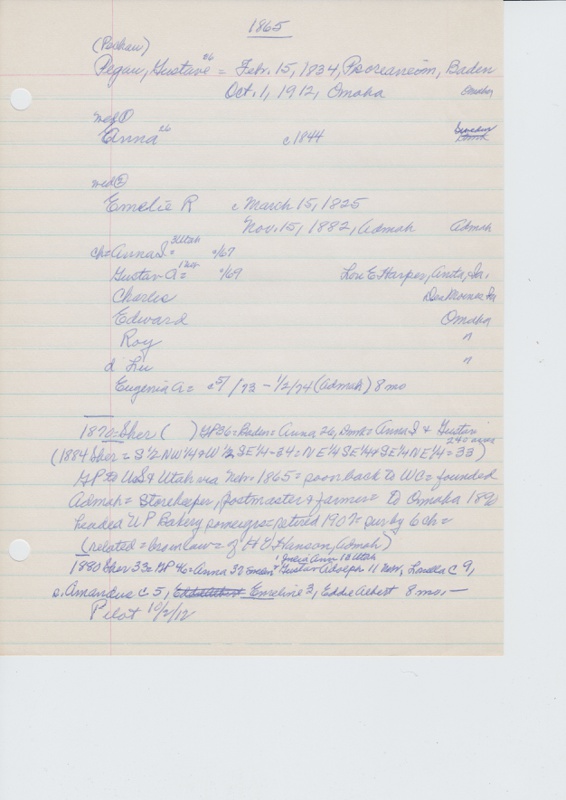 1865
(Pechau)
Pegau, Gustave 26 = Febr. 15, 1834, Baden
Oct. 1, 1912, Omaha Omaha
wed ①
Anna 26 c 1844 Sweden
wed ②
Emelie R c March 15, 1825
Nov. 15, 1882, Admah Admah
ch = Anna S = 3 Utah c/67
Gustav A = c/69 Lou E Harper, Anita, Ia.
Charles Des Moines Ia
Edward Omaha
Roy "
d Lu "
Eugenia A = c 5/ /73 - 1/2/74 (Admah) 8 mo
1870 = Sher ( ) GP 36 = Baden = Anna 26, Dmk = Anna S & Gustav
240 acres
(1884 Sher = S 1/2 NW 1/4 & W 1/2 SE 1/4 - 34 = NE 1/4 SE 1/4 & SE 1/4 NE 1/4 = 33)
GP to US & Utah via Nebr. 1865 = poor back to WC = founded
Admah = Storekeeper, postmaster & farmer = to Omaha
headed UP Bakery = retired 190 = sur by 6 ch =
(related = bro in law = of H O Hanson, Admah)
Julia Ann 13 Utah
1880 Sher 33 = GP 46 = Anna 37 & Gustav Adolph 11 Nebr, Louella C 9,
s. Amandus C 5, Emeline 3, Eddie Albert 8 mo. -
Pilot 10/2/12